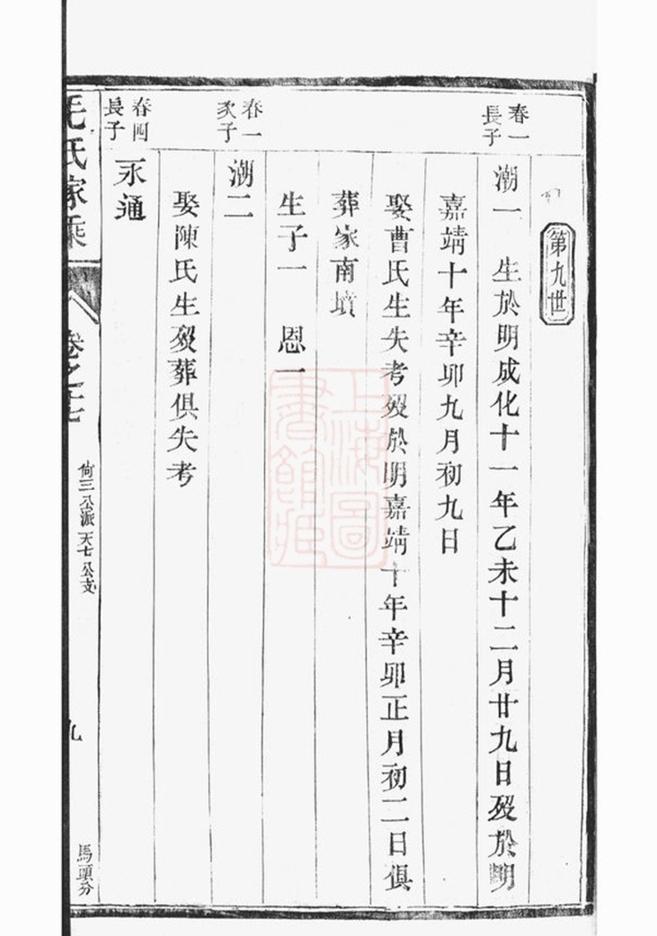 第九世
春一長子
潮一　生於明成化十一年乙未十二月廿九日殁於明
嘉靖十年辛卯九月初九日
娶曹氏生失考殁於明嘉靖十年辛卯正月初二日俱
葬家南墳
生子一　恩一
春一次子
潮二
娶陳氏生殁葬俱失考
春四長子
永通
毛氏家乘
卷之
尙三公派天七公支
九
馬頭分
上海圖書館藏